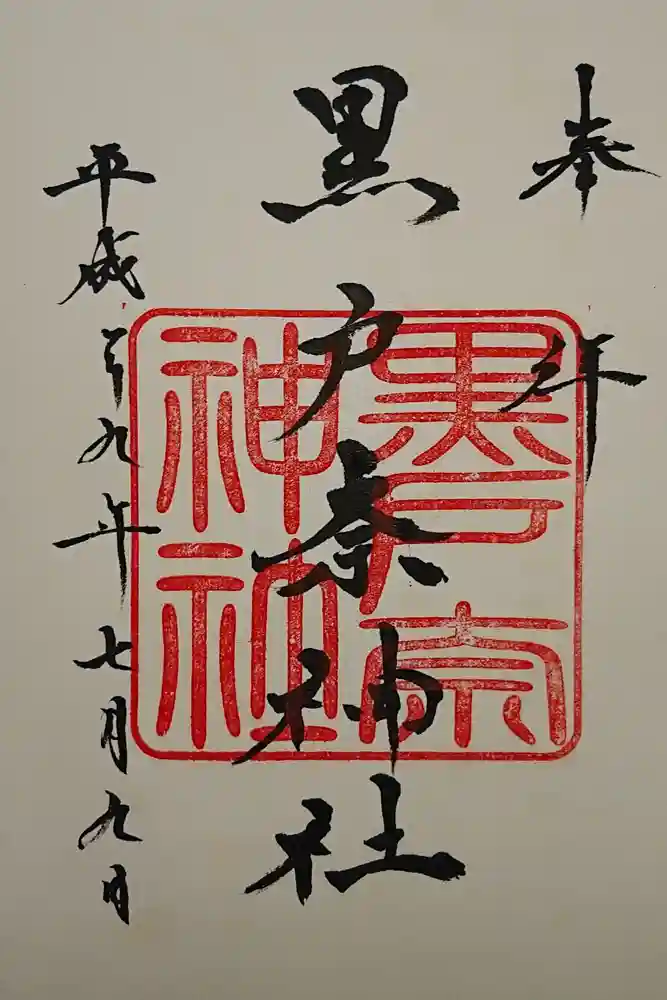 奉拝
黒戸奈神社
平成廿九年七月九日
黒戸奈
神社